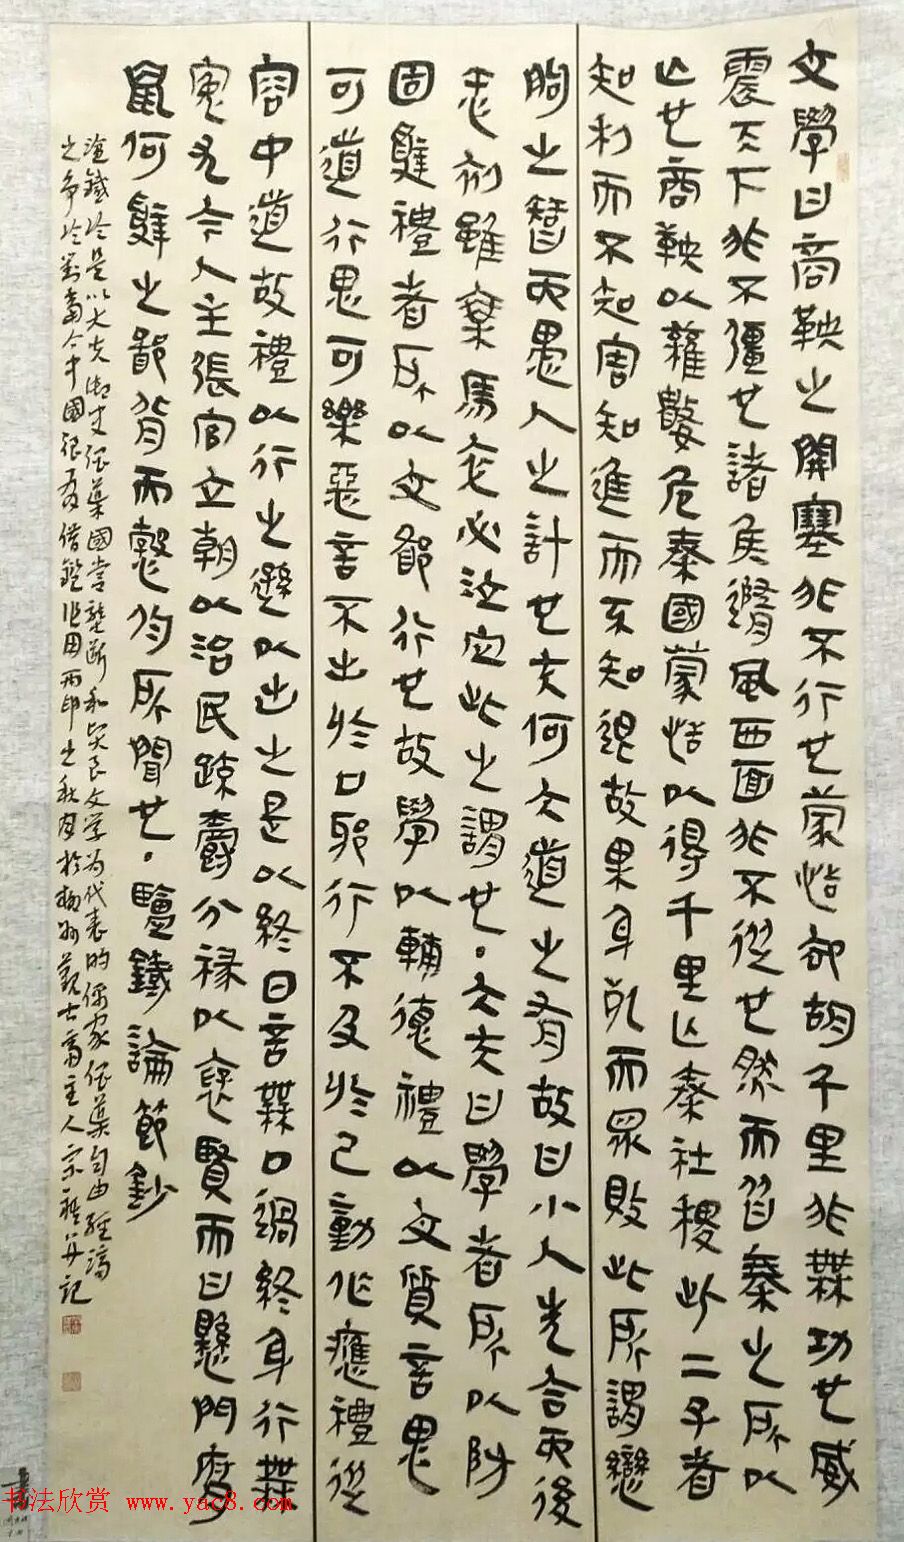 文學曰商鞅之開塞非不行也蒙恬卻胡千里非無功也威
震天下非不彊也諸侯隨風西面非不從也然而皆秦之所以
亡也商鞅以權數危秦國蒙恬以得千里亡秦社稷此二子者
知利而不知害知進而不知退故果身死而眾敗此所謂戀
朐之智而愚人之計也夫何大道之有故曰小人先合而後
忤初雖乘馬卒必泣血此之謂也。大夫曰學者所以防
固辭禮者所以文鄙行也故學以輔德禮以文質言思
可道行思可樂惡言不出於口邪行不及於己動作應禮從
容中道故禮以行之遜以出之是以終日言無口過終身行無
冤尤今人主張官立朝以治民疏爵分祿以褒賢而曰懸門腐
鼠何辭之鄙背而悖於所聞也。鹽鐵論節鈔
鹽鐵論是以大夫御史 國營壟斷和賢良文學為代表的儒家 自由經濟
之爭論對當今中國很有借鑒作用丙申之秋月於 主人宗 并記
书法欣赏 www.yac8.com